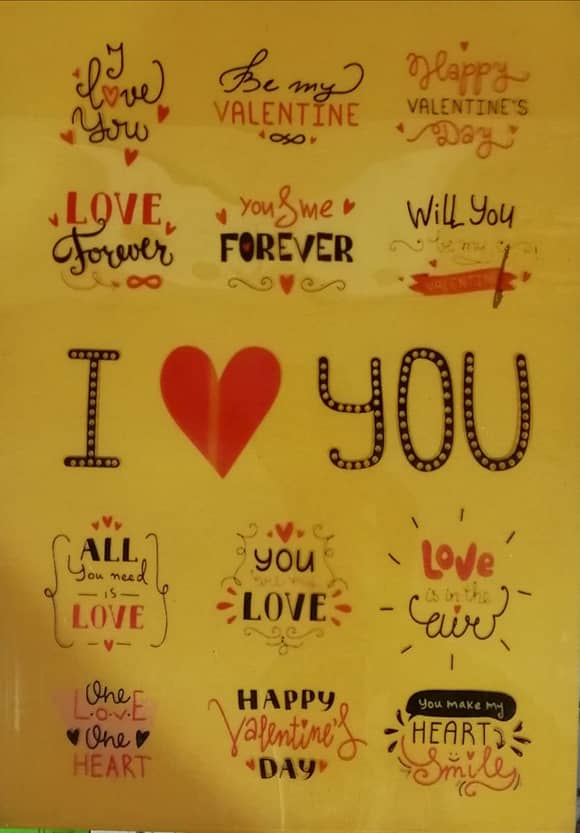 I
love
You
Be my
VALENTINE
Happy
VALENTINE'S
Day
LOVE
Forever
you & me
FOREVER
Will You
be my
VALENTINE
I ♥ YOU
ALL
You need
IS
LOVE
you
are my
LOVE
Love
is in the
air
One
LOVE
One
HEART
HAPPY
Valentine's
DAY
You make my
HEART
Smile